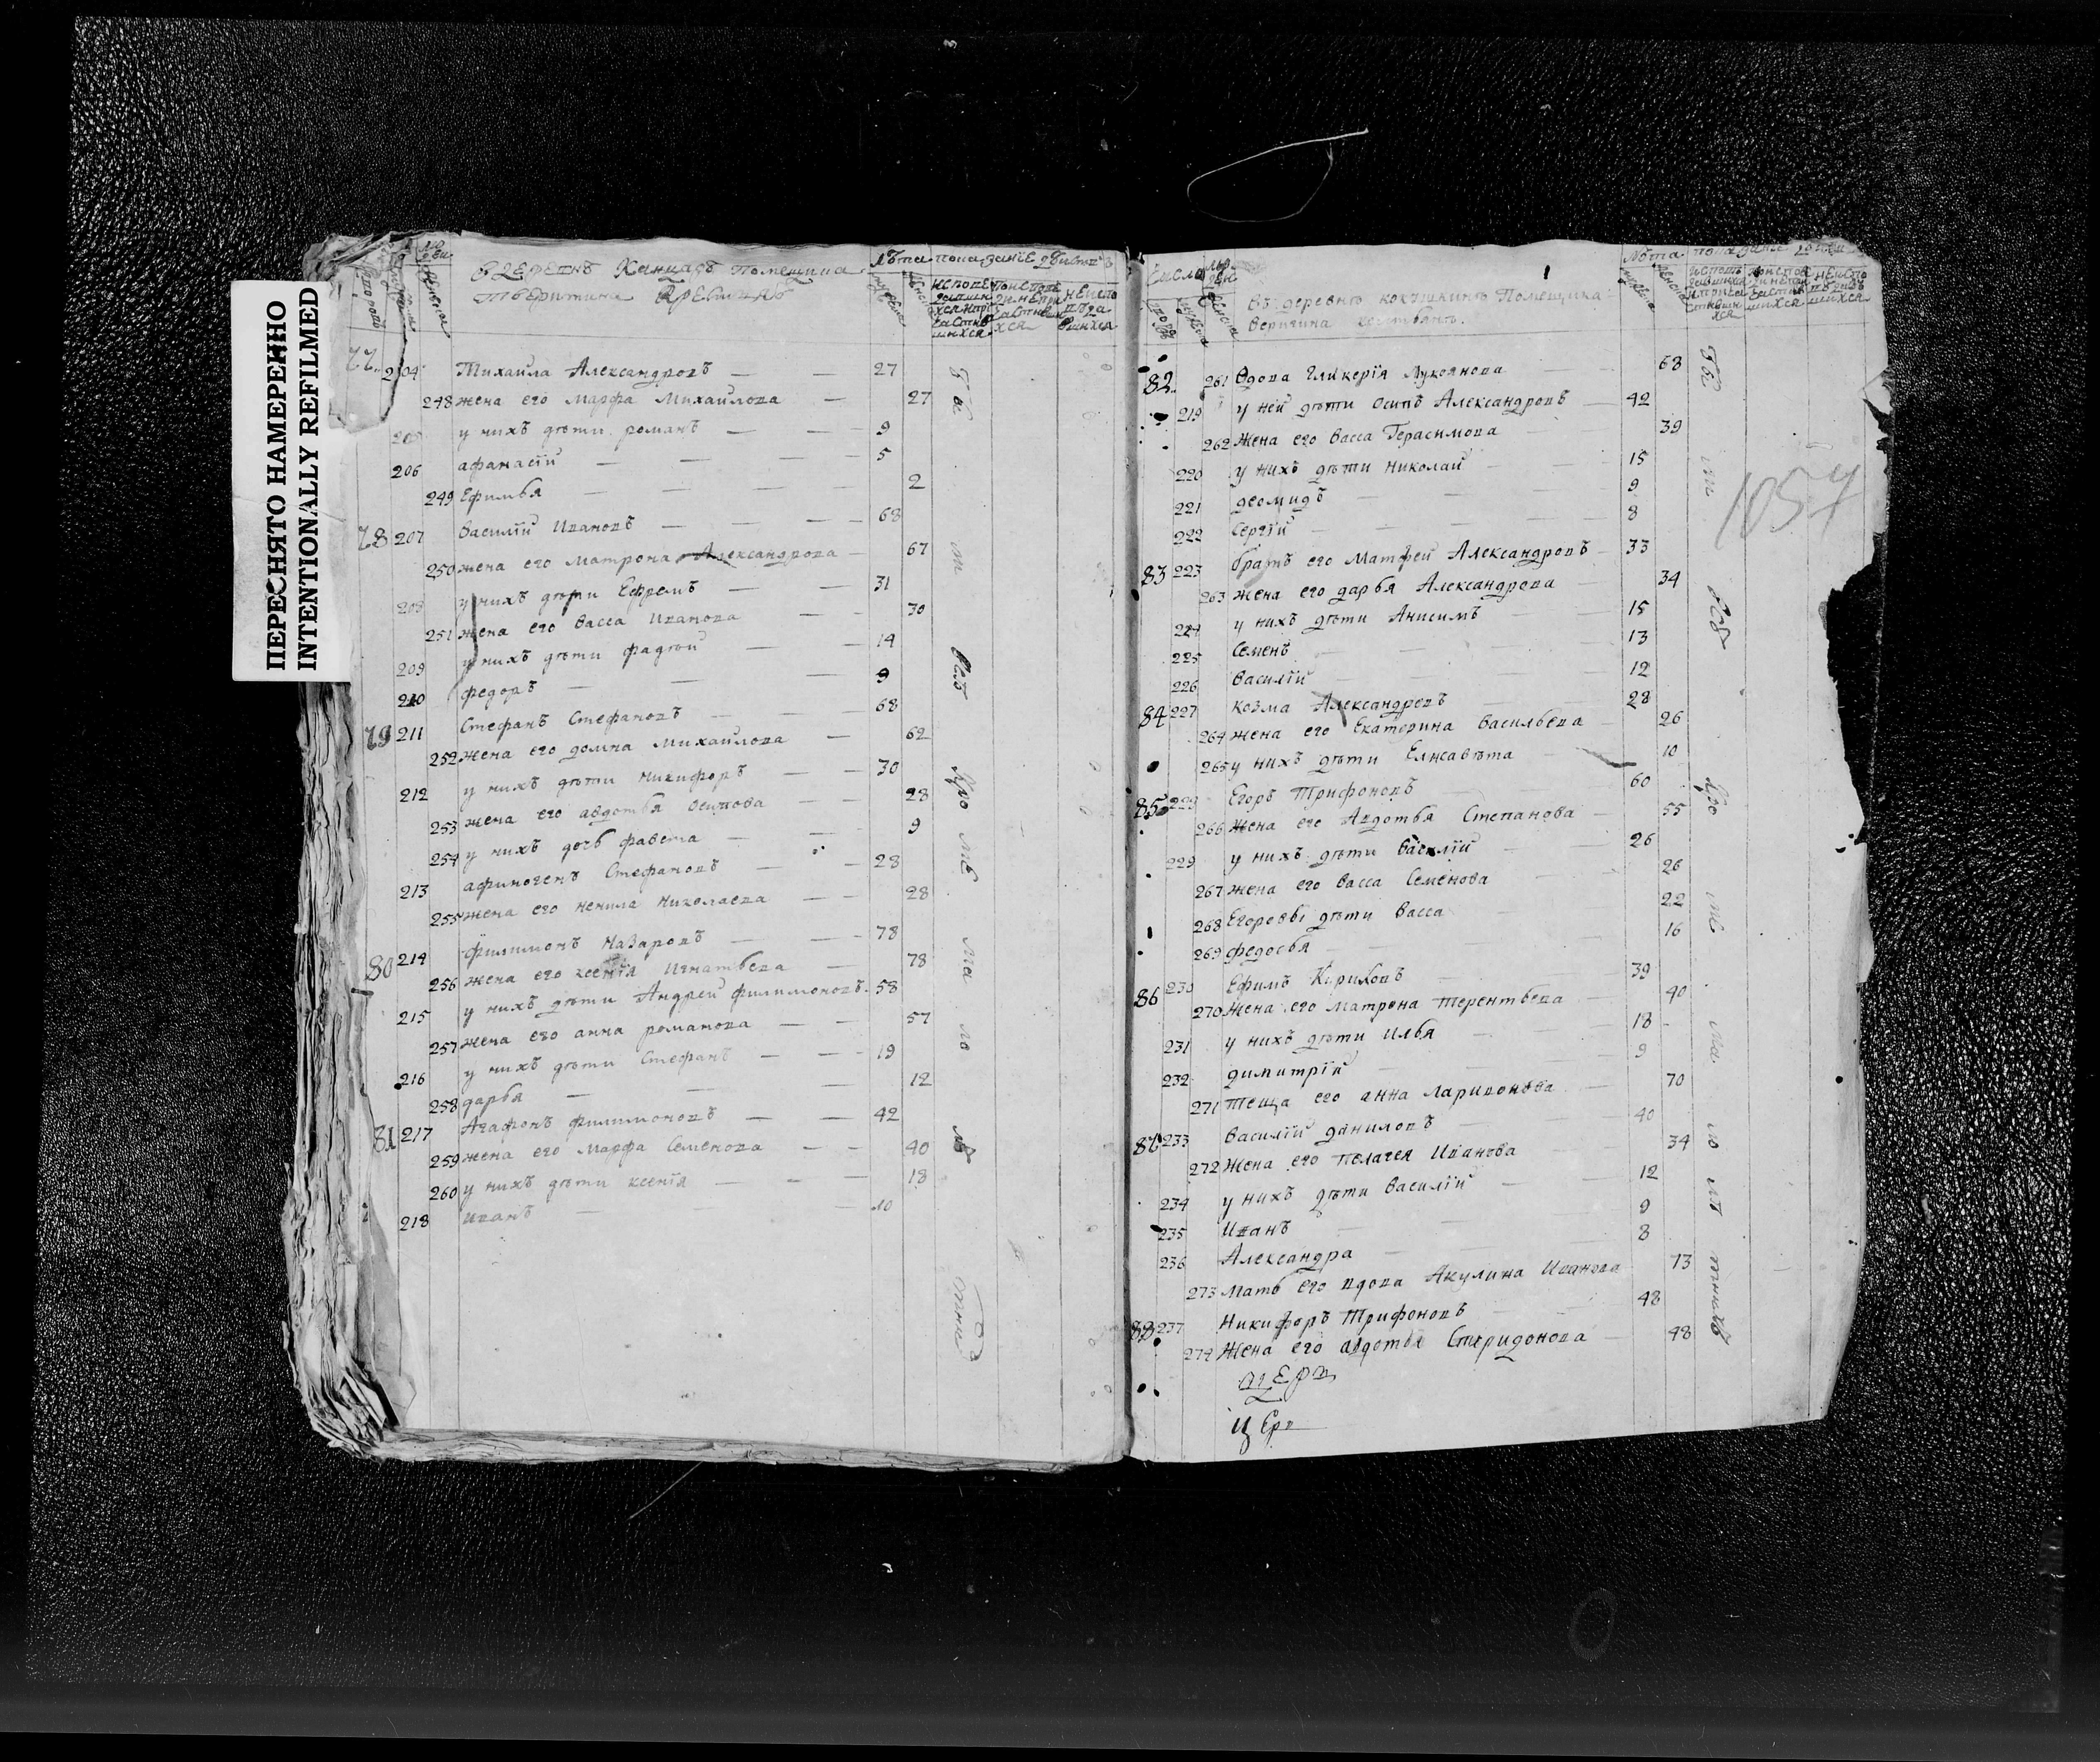 ПЕРЕСНЯТО НАМЕРЕННО
INTENTIONALLY REFILMED
в деревнѣ Канцарь помещика
Тверитина крестьянъ
лѣта показанїе
77 204 Михаила Александровъ 27
248 жена его марфа михаилова 27
205 у нихъ дѣти романъ 9
206 афанасїи 5
249 Ефимья 2
78 207 Василїи Ивановъ 68
250 жена его матрона Александрова 67
208 у нихъ дѣти Ефремъ 31
251 жена его васса Иванова 30
209 у нихъ дѣти фадѣи 14
210 федоръ 9
79 211 Стефанъ Стефановъ 68
252 жена его домна михаилова 62
212 у нихъ дѣти никифоръ 30
253 жена его авдотья осипова 28
254 у нихъ дочь фавста 9
213 афиногенъ Стефановъ 28
255 жена его ненила николаева 28
80 214 филимонъ назаровъ 78
256 жена его ксенїя игнатьева 78
215 у нихъ дѣти Андреи филимоновъ 58
257 жена его анна романова 57
216 у нихъ дѣти Стефанъ 19
258 дарья 12
81 217 Агафонъ филимоновъ 42
259 жена его марфа Семенова 40
260 у нихъ дѣти ксенїя 18
218 иванъ 10
1
число
лѣта показанїе
въ деревнѣ кокушкинѣ Помещика
Веригина крестьянъ
1057
82 261 вдова гликерїя лукоянова 68
219 у неи дѣти осипъ Александровъ 42
262 жена его васса Герасимова 39
220 у нихъ дѣти николаи 15
221 деомидъ 9
222 Сергїи 8
83 223 братъ его матфеи Александровъ 33
263 жена его дарья Александрова 34
224 у нихъ дѣти Анисимъ 15
225 Семенъ 13
226 василїи 12
84 227 козма Александровъ 28
264 жена его екатерина васильева 26
265 у нихъ дѣти Елисавѣта 10
85 228 Егоръ Трифоновъ 60
266 жена его Авдотья Степанова 55
229 у нихъ дѣти василїи 26
267 жена его васса Семенова 26
268 Егоровы дѣти васса 22
269 федосья 16
86 230 Ефимъ Кириловъ 39
270 жена его матрона терентьева 40
231 у нихъ дѣти илья 18
232 димитрїи 9
271 теща его анна ларивонова 70
87 233 василїи даниловъ 40
272 жена его пелагея иванова 34
234 у нихъ дѣти василїи 12
235 иванъ 9
236 Александра 8
273 мать его вдова Акулина иванова 73
88 237 никифоръ Трифоновъ 48
274 жена его авдотья Спиридонова 48